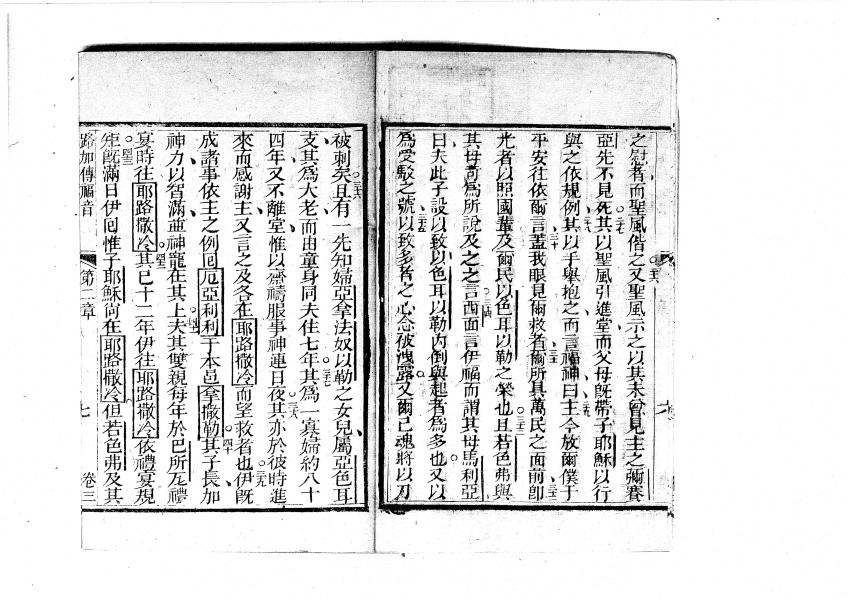 之慰者而聖風偕之又聖風示之以其未曾見主之彌賽
亞先不見死其以聖風引進堂而父母旣帶子耶穌以行
與之依規例其以手舉抱之而言福神曰主今放爾僕于
平安往依爾言蓋我眼見爾救者爾所具萬民之面前卽
光者以照國輩及爾民以色耳以勒之榮也且若色弗與
其母奇爲所說及之之言西面言伊福而謂其母馬利亞
曰夫此子設以致以色耳以勒內倒與起者爲多也又以
爲受駁之號以致多者之心念被洩露又爾己魂將以刀
被刺矣且有一先知婦亞拿法奴以勒之女兒屬亞色耳
支其爲大老而由童身同夫住七年其爲一寡婦約八十
四年又不離堂惟以齋禱服事神連日夜其亦於彼時進
來而感謝主又言之及各在耶路撒冷而望救者也伊旣
成諸事依主之例囘厄亞利利于本邑拿撒勒其子長加
神力以智滿並神寵在其上夫其雙親每年於巴所瓦禮
宴時往耶路撒冷其已十二年伊往耶路撒冷依禮宴規
矩旣滿日伊囘惟子耶穌尚在耶路撒冷但若色弗及其
路加傳福音 第二章 七 卷三